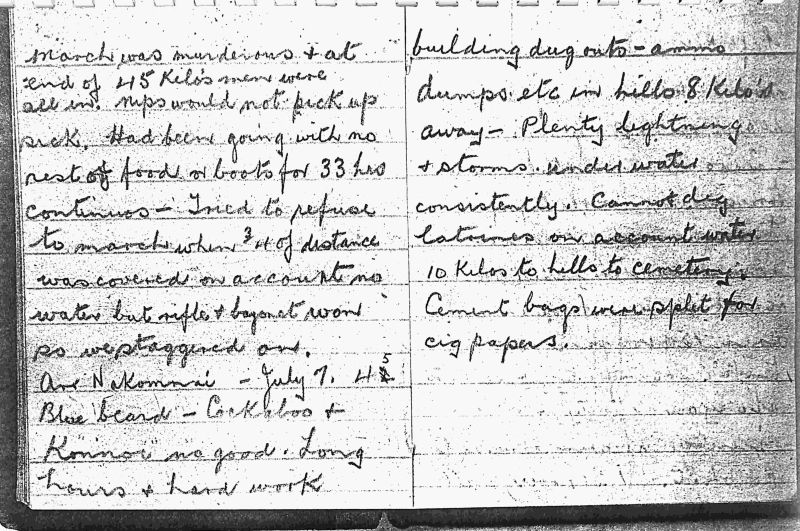 march was murderous & at
end of 45 Kilo's men were
all in. Nips would not pick up
sick. Had been going with no
rest or food or boots for 33 hrs
continuos - Tried to refuse
to march when 3/4 of distance
was covered on account no
water but rifle & bayonet won
so we staggered on.
Arr Nakommai - July 7. 45
Blue beard - Cockaloo &
Konnor no good. Long
hours & hard work
building dug outs - ammo
dumps etc in hills 8 Kilo's
away - Plenty lightning
& storms. under water
consistently. Cannot dig
latrines on account water
10 Kilos to hills to cemetery.
Cement bags were split for
cig papers.